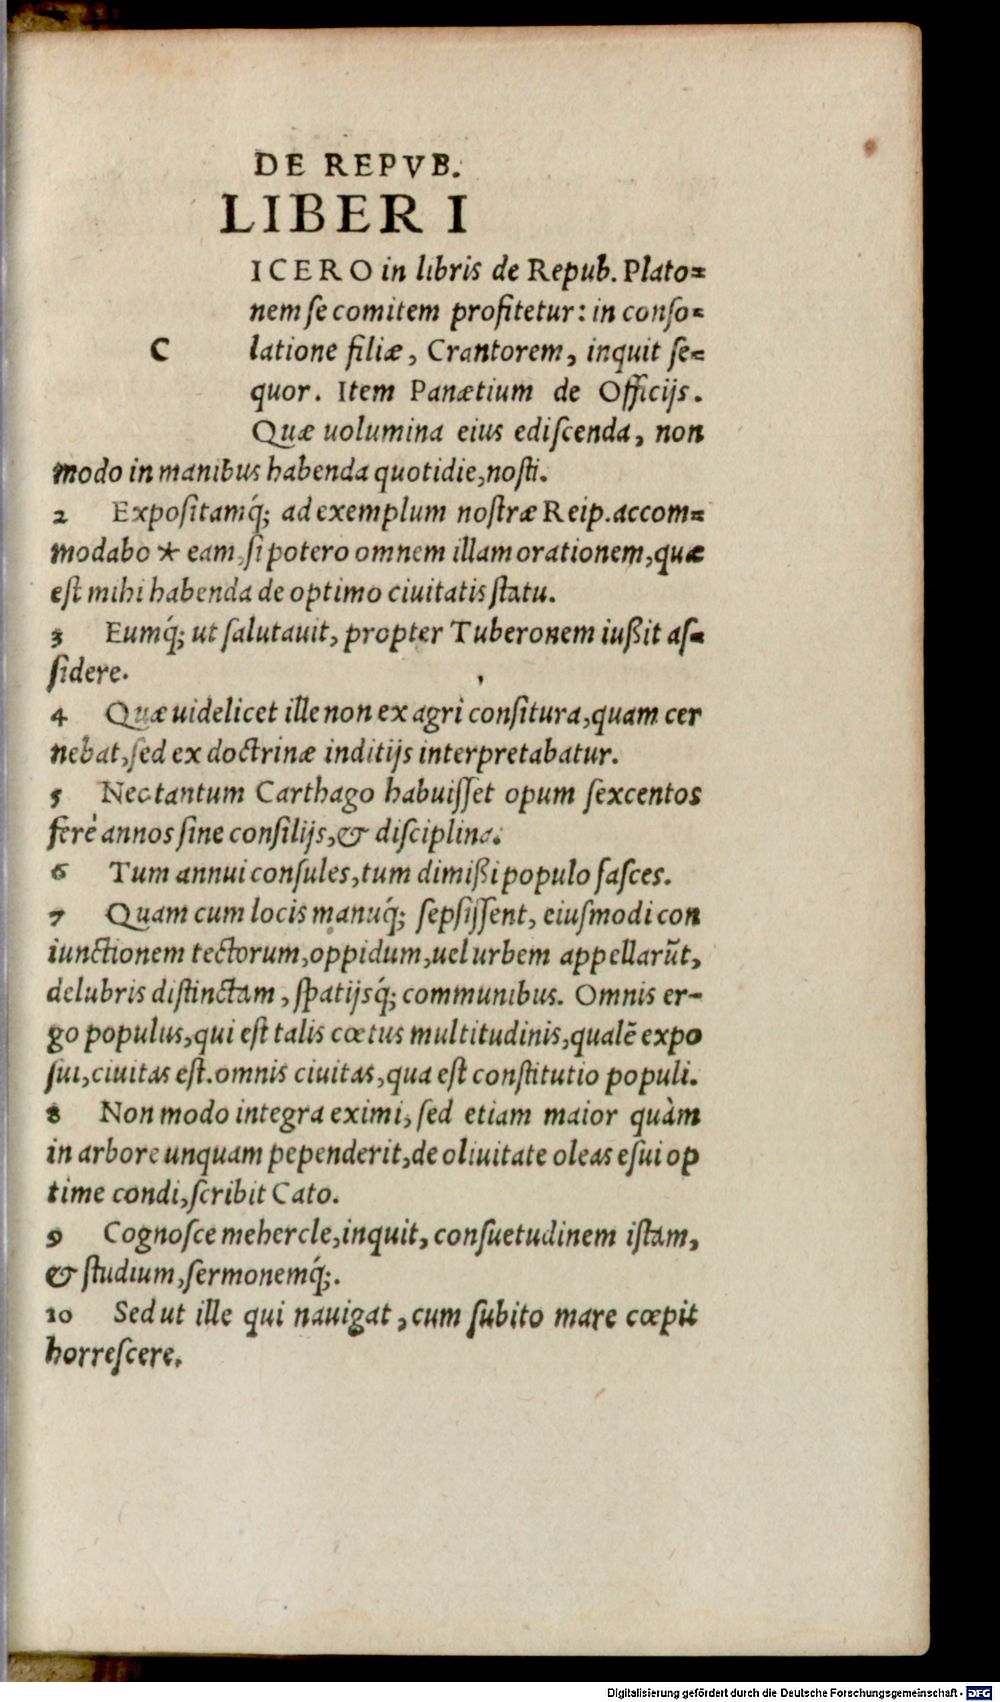 DE REPVB.
LIBER I
CICERO in libris de Repub. Plato=
nem se comitem profitetur: in conso=
latione filiæ, Crantorem, inquit se=
quor. Item Panætium de Officijs.
Quæ uolumina eius ediscenda, non
modo in manibus habenda quotidie, nosti.
2 Expositamq́; ad exemplum nostræ Reip. accom=
modabo * eam, si potero omnem illam orationem, quæ
est mihi habenda de optimo ciuitatis statu.
3 Eumq́; ut salutauit, propter Tuberonem iußit as=
sidere.
4 Quæ uidelicet ille non ex agri consitura, quam cer
nebat, sed ex doctrinæ inditijs interpretabatur.
5 Nec tantum Carthago habuisset opum sexcentos
ferè annos sine consilijs, & disciplina.
6 Tum annui consules, tum dimißi populo fasces.
7 Quam cum locis manuq́; sepsissent, eiusmodi con
iunctionem tectorum, oppidum, uel urbem appellarũt,
delubris distinctam, spatijsq́; communibus. Omnis er-
go populus, qui est talis cœtus multitudinis, qualẽ expo
sui, ciuitas est. omnis ciuitas, qua est constitutio populi.
8 Non modo integra eximi, sed etiam maior quàm
in arbore unquam pependerit, de oliuitate oleas esui op
time condi, scribit Cato.
9 Cognosce mehercle, inquit, consuetudinem istam,
& studium, sermonemq́;.
10 Sed ut ille qui nauigat, cum subito mare cœpit
horrescere.
Digitalisierung gefördert durch die Deutsche Forschungsgemeinschaft - DFG